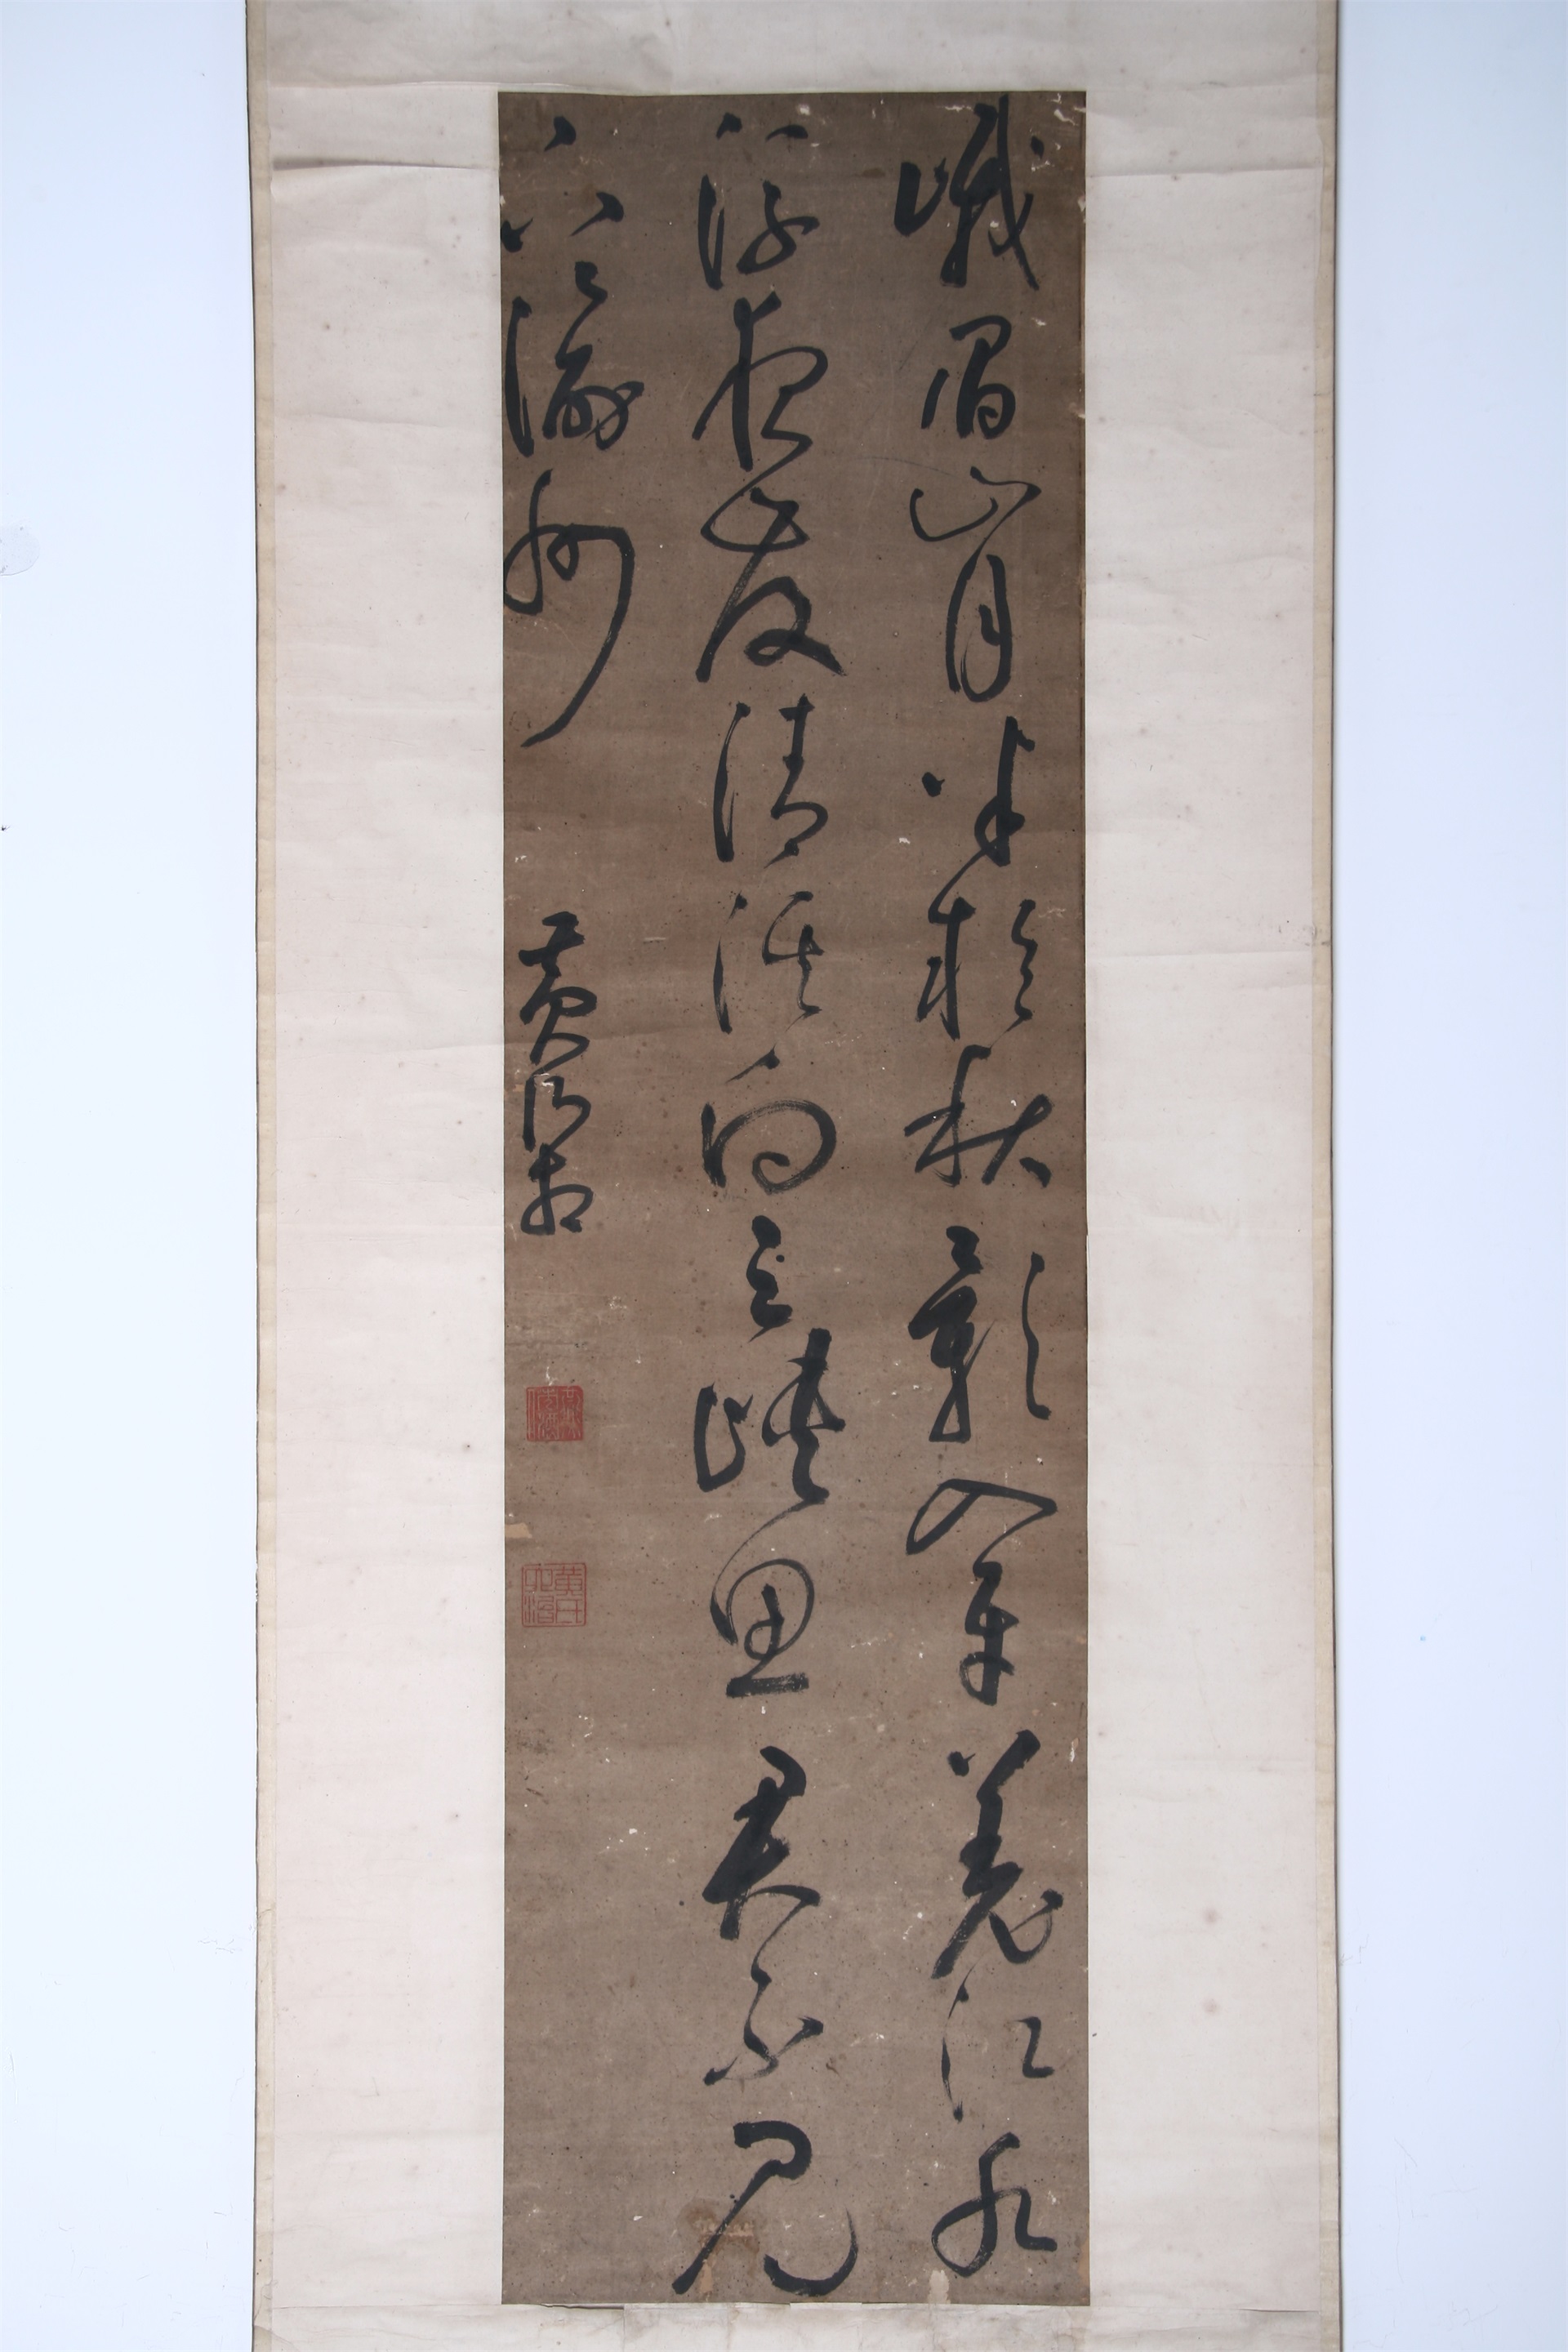 峨眉山月半輪秋影入平羌江水
流夜發清溪向三峽思君不見
下渝州
黃
黃氏